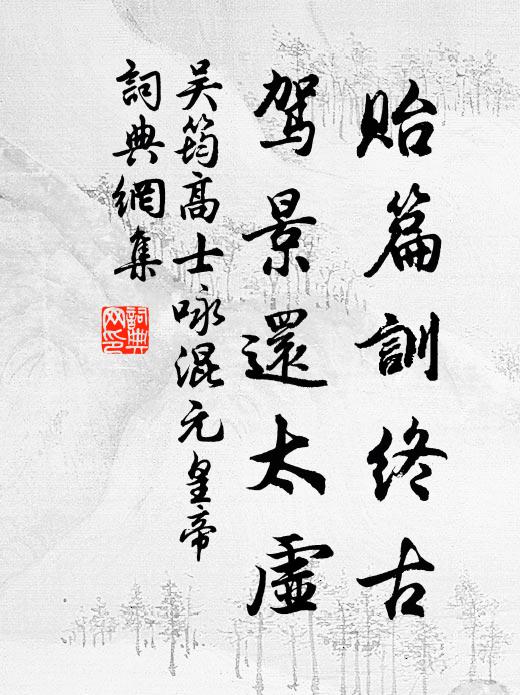 貽篇訓終古
駕景還太虛
吴筠高士咏混元皇帝
詞典網集
詞典网印